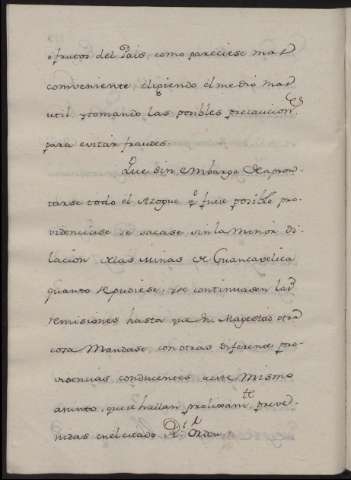 o frutos del Pais, como pareciese mas
conveniente, eligiendo el medio mas
util, y tomando las posibles precaucion.es
para evitar fraudes.
Que sin embargo de apron-
tarse todo el Azogue q.e fuese posible, pro-
videnciase se sacase sin la menor di-
lacion de las Minas de Guancavelica
quanto se pudiese, y se continuasen las
remisiones hasta que Su Magestad otra
cosa Mandase, con otras diferentes pro-
videncias conducentes a este mismo
asunto, que se hallan prolixam.te preve-
nidas en el citado R.l Orden.